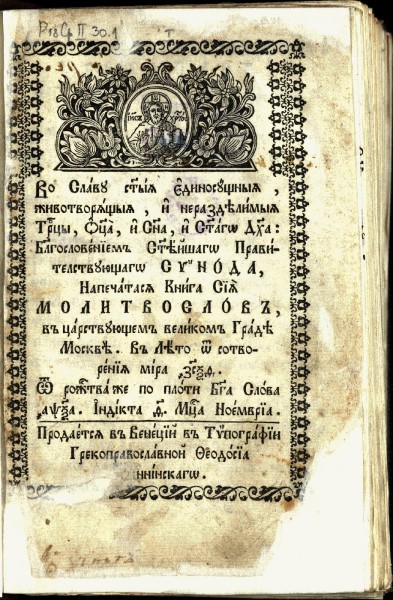 Р18 Ср II 30.1
ІИС ХРТОС
Во Славу ст҃ыѧ є҆диносꙋщныѧ,
животворѧщыѧ, и҆ нераздѣлимыѧ
Трⷪ҇цы, Ѻ҆ц҃а, и҆ Сн҃а, и҆ Ст҃агѡ Дх҃а:
Благословенїемъ Ст҃ѣйшагѡ Прави-
телствующагѡ СѴНОДА,
Напечатасѧ Книга Сїѧ
МОЛИТВОСЛОВЪ,
въ царствующемъ великомъ Градѣ
Москвѣ. Въ Лѣто ѿ сотво-
ренїѧ мїра
Ѿ рождтва же по плоти Бг҃а Слова
Індїкта Мц҃а Ноемврїа.
Продаетсѧ въ Венецїй въ Тѷпографїи
Грекоправославной Ѳеодосїа
ннїнскагѡ.